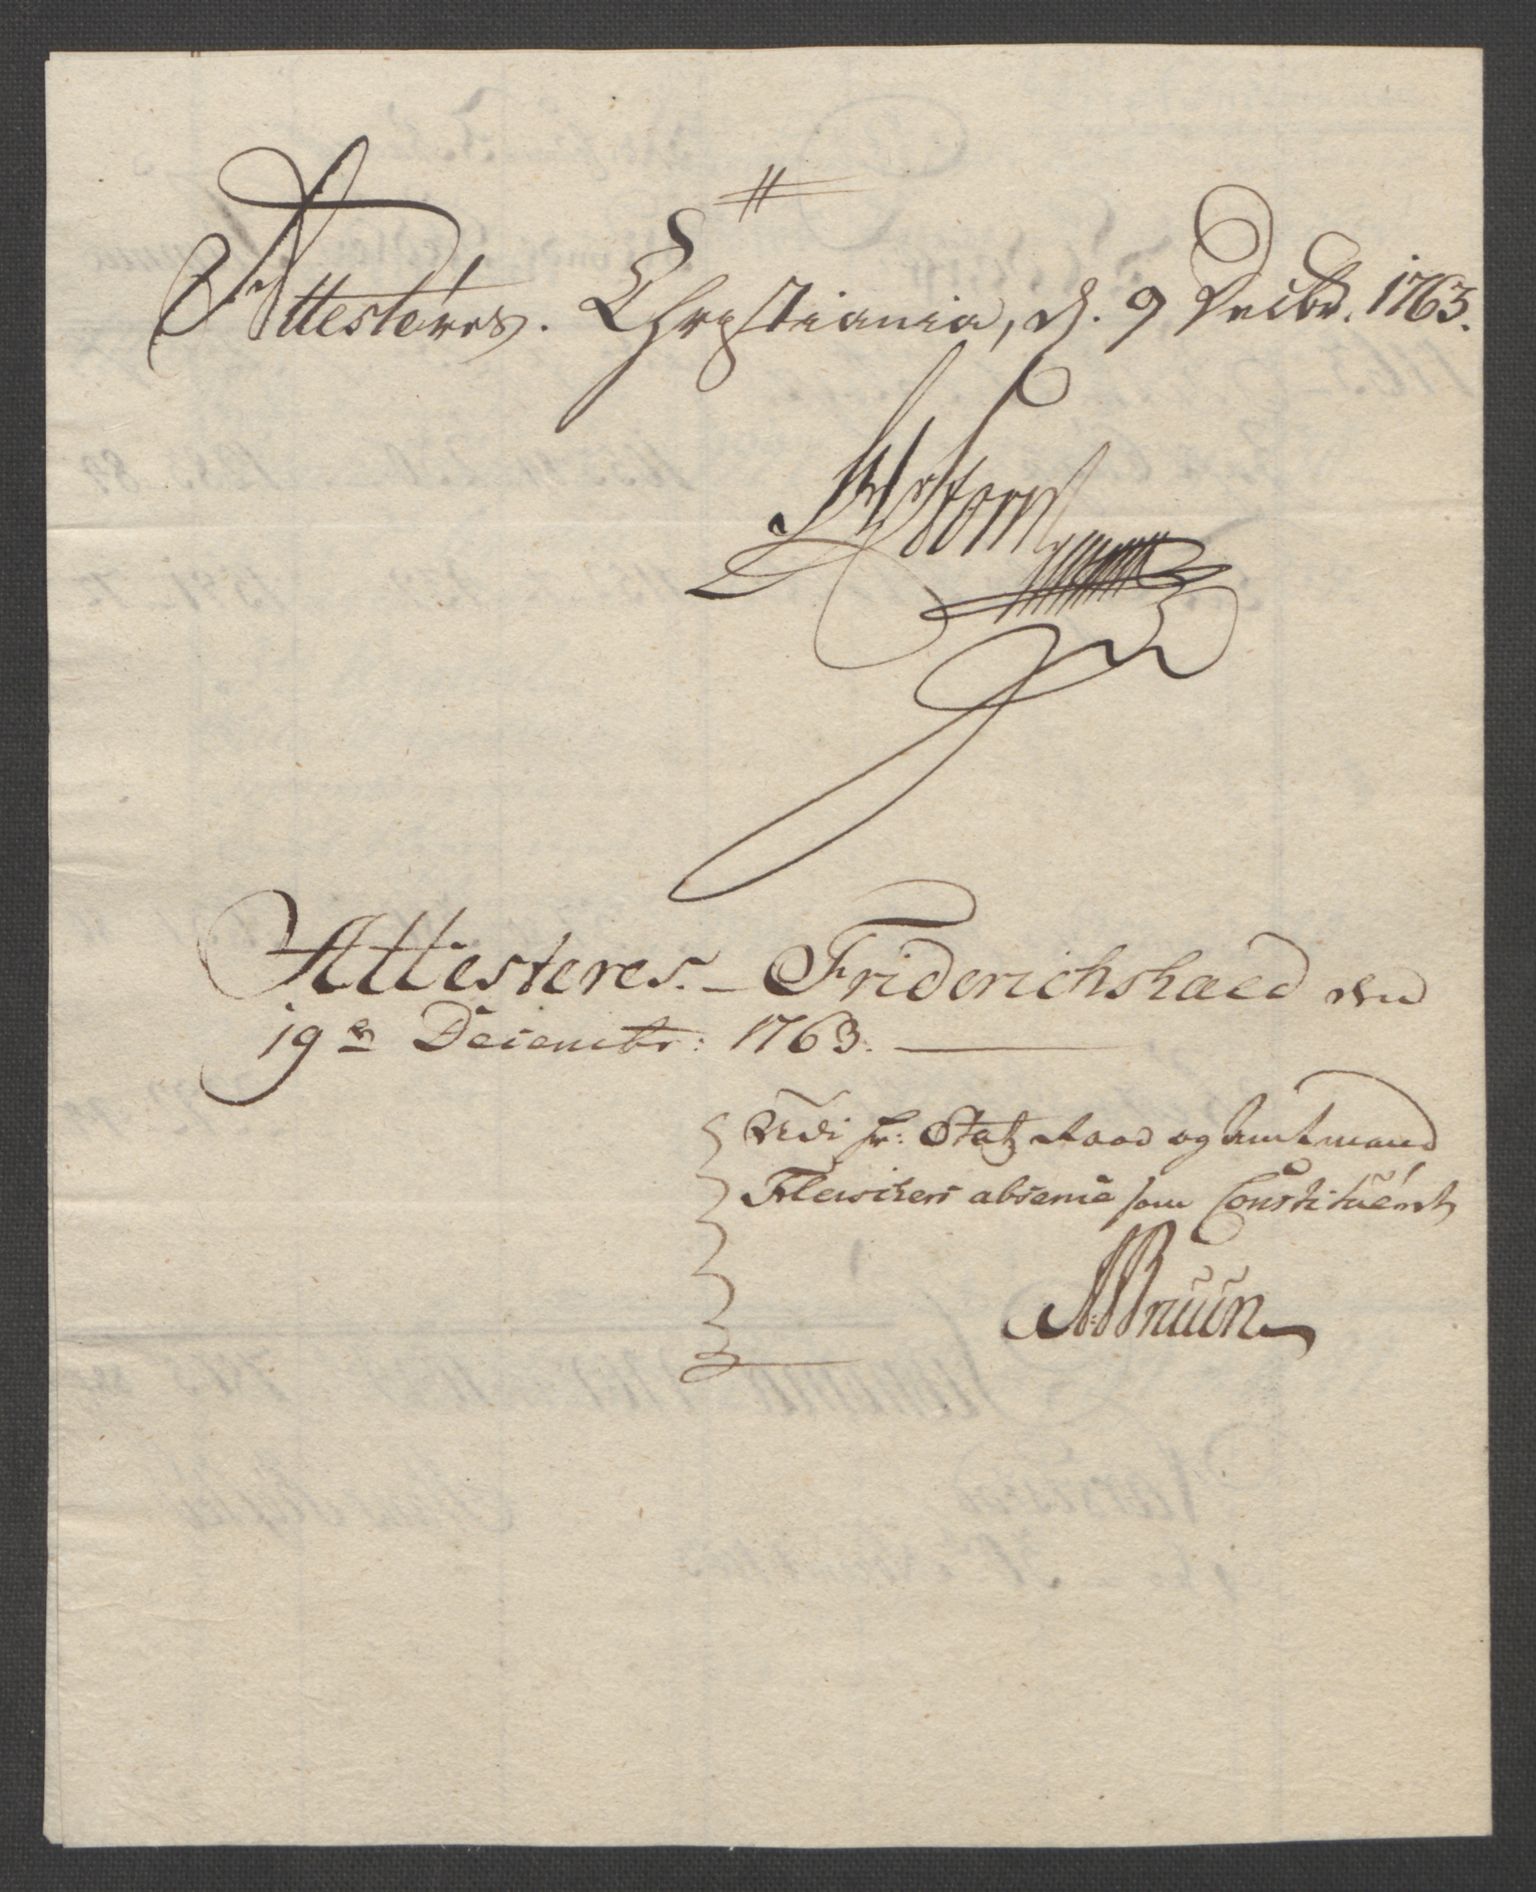 Attesteres. Christiania, d. 9 Decbr. 1763.
Storm
Attesteres. – Friderichshald den
19de Decembr: 1763.
Udi hr: Statz Raad og Amtmand
absence som Constitueret
Bruun